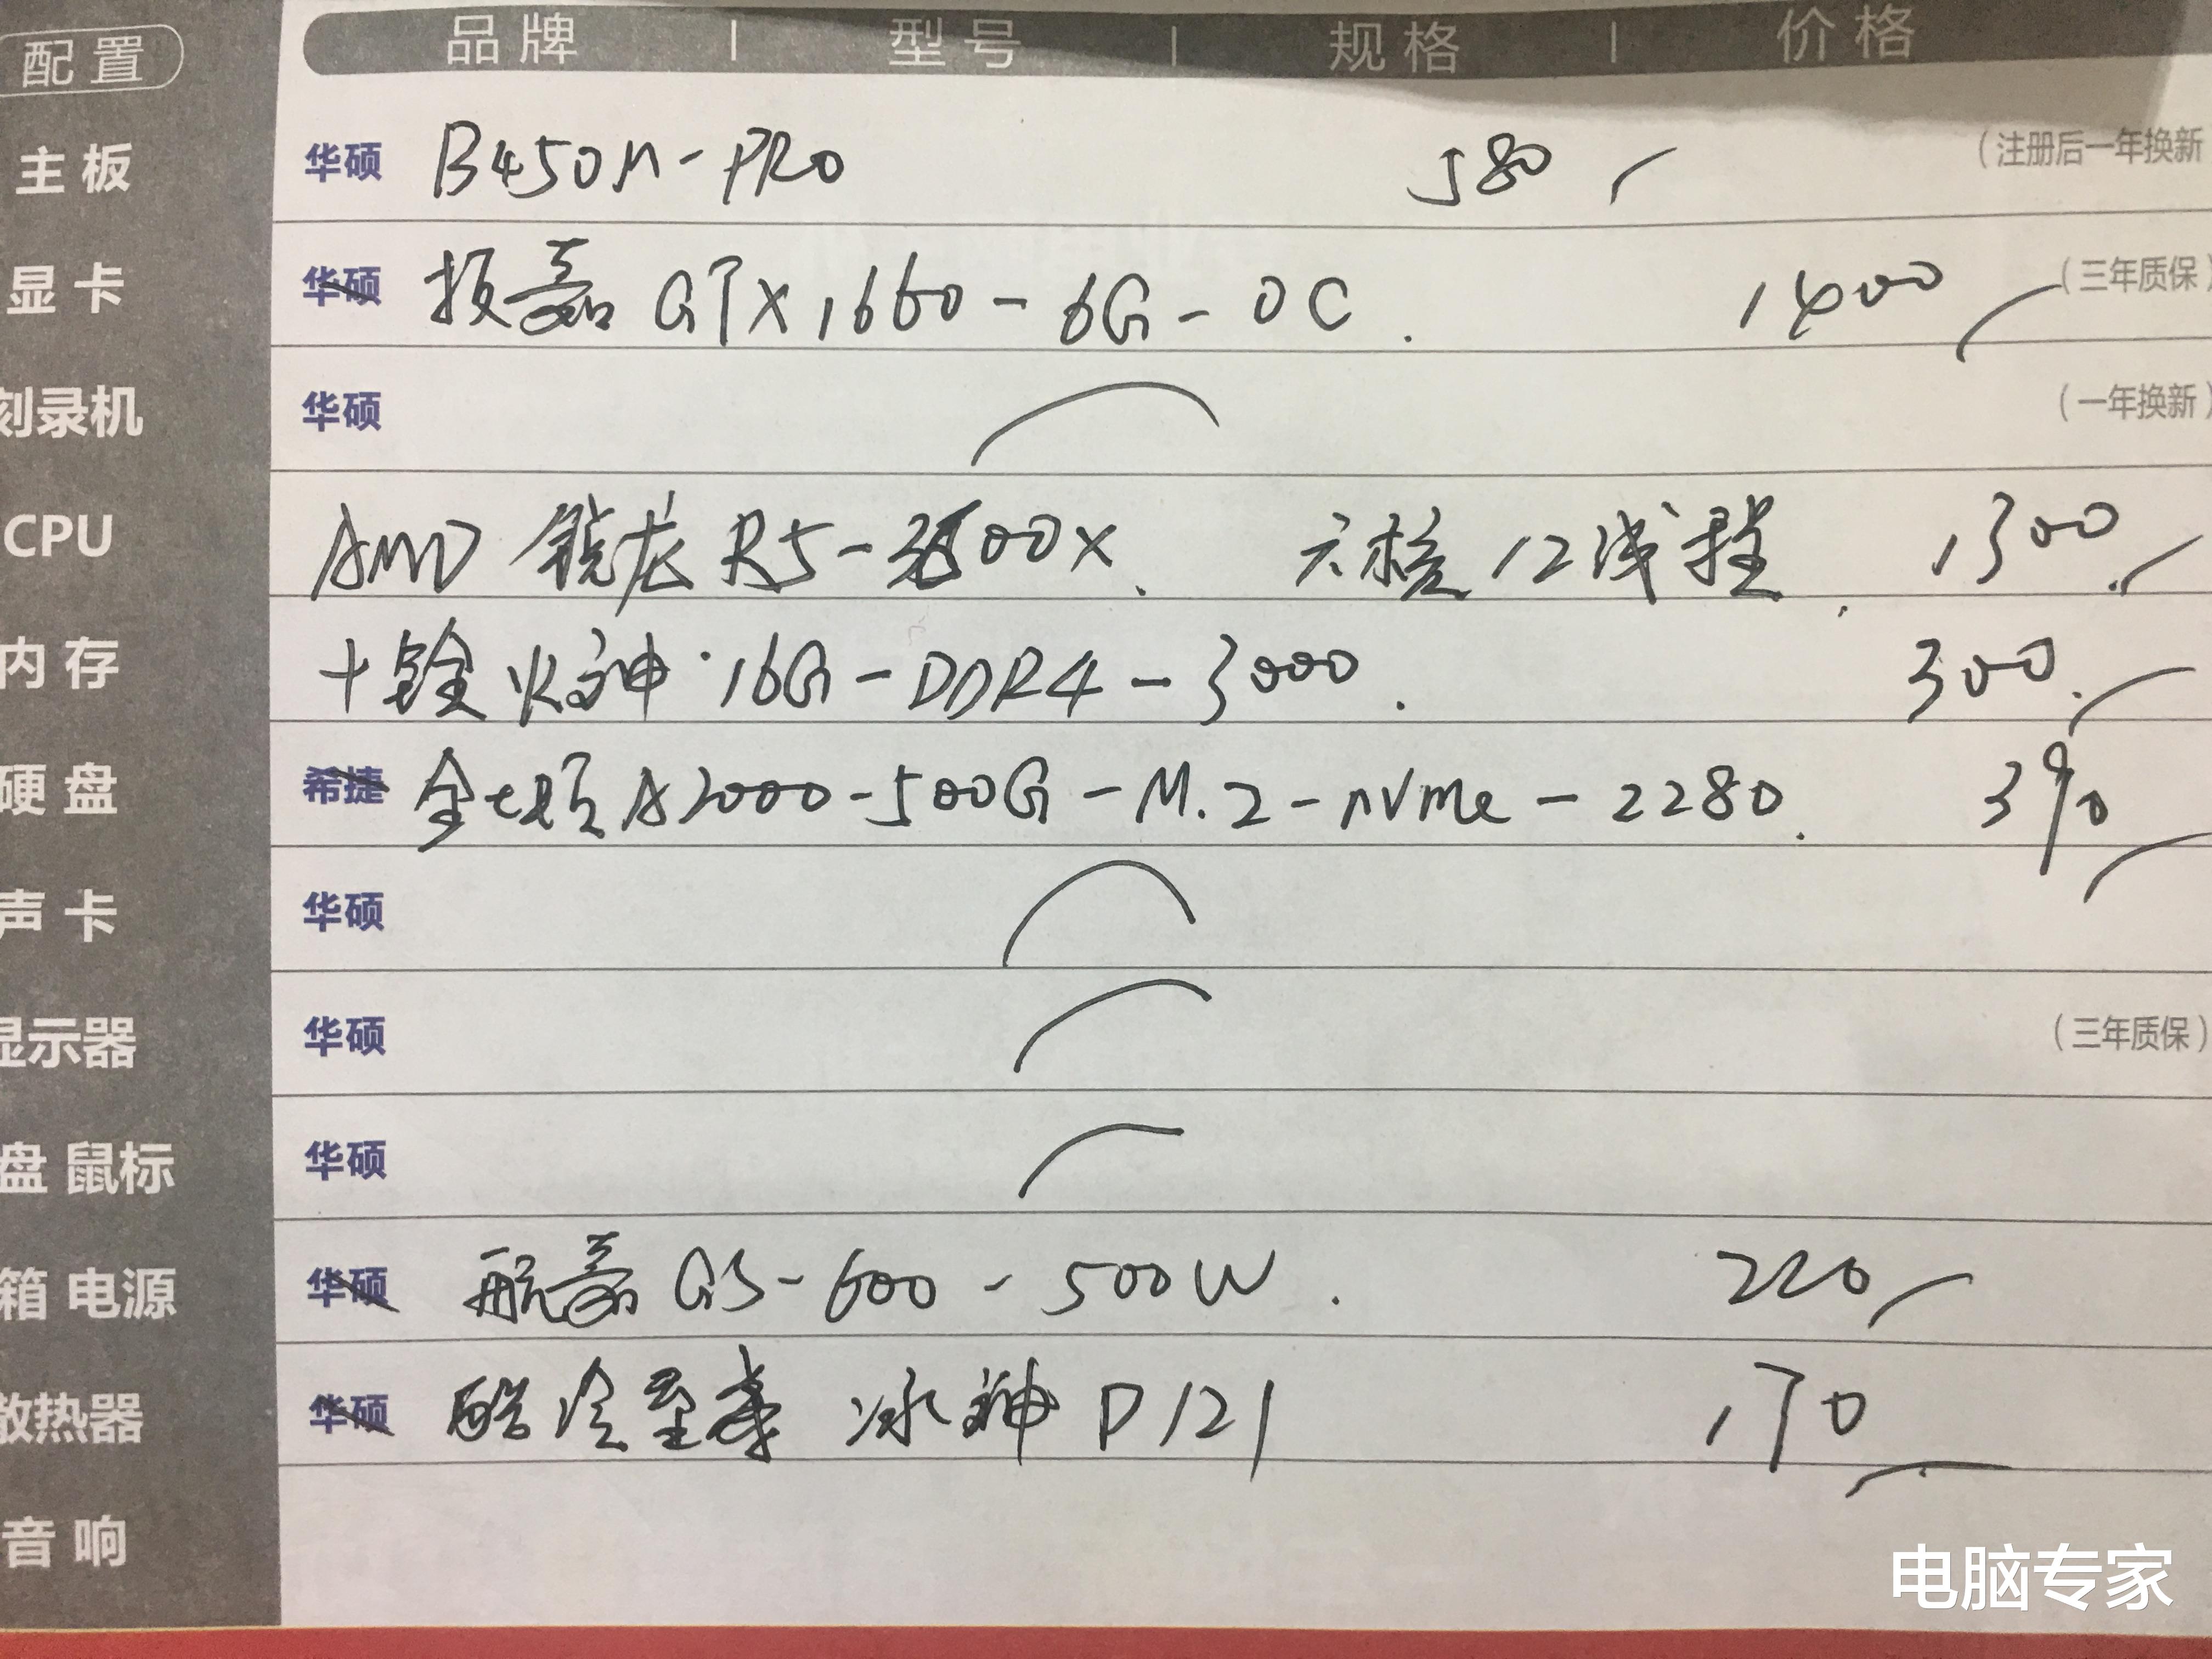 配置 品牌 | 型号 | 规格 | 价格
主板 华硕 B450M-PRO 580 (注册后一年换新
显卡 华硕 技嘉 GTX1660-6G-OC. 1400 (三年质保)
刻录机 华硕 (一年换新)
CPU AMD 锐龙 R5-3600X. 六核12线程. 1300.
内存 十铨火神·16G-DDR4-3000. 300.
硬盘 希捷 金士顿A2000-500G-M.2-nVme-2280. 390
声卡 华硕
显示器 华硕 (三年质保)
盘 鼠标 华硕
箱 电源 华硕 航嘉GS-600-500W. 220
散热器 华硕 酷冷至尊 冰神D121 170
音响
电脑专家